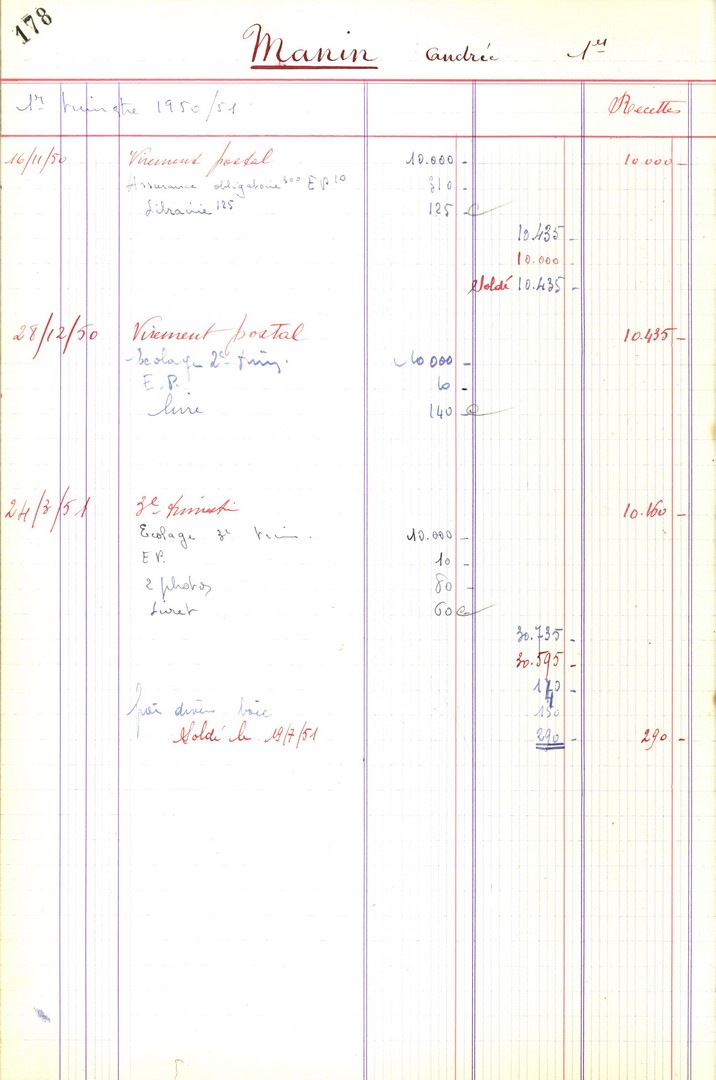 178
Manin Andrée 1er
1er trimestre 1950/51 Recettes
16/11/50 Virement postal 10.000 - 10.000 -
Assurance obligatoire 300 E.P. 10 310 -
Librairie 125 125 -
10.435 -
10.000 -
Soldé 10.435 -
28/12/50 Virement postal 10.435 -
Ecolage 2e trim. 10 000 -
E.P. -
livre 140 -
24/3/51 3e trimestre 10.160 -
Ecolage 3e trim. 10.000 -
E.P. 10 -
2 photos 80 -
Livret 60 -
30.735 -
30.595 -
140 -
4
frais divers 150
Soldé le 19/7/51 290 - 290 -